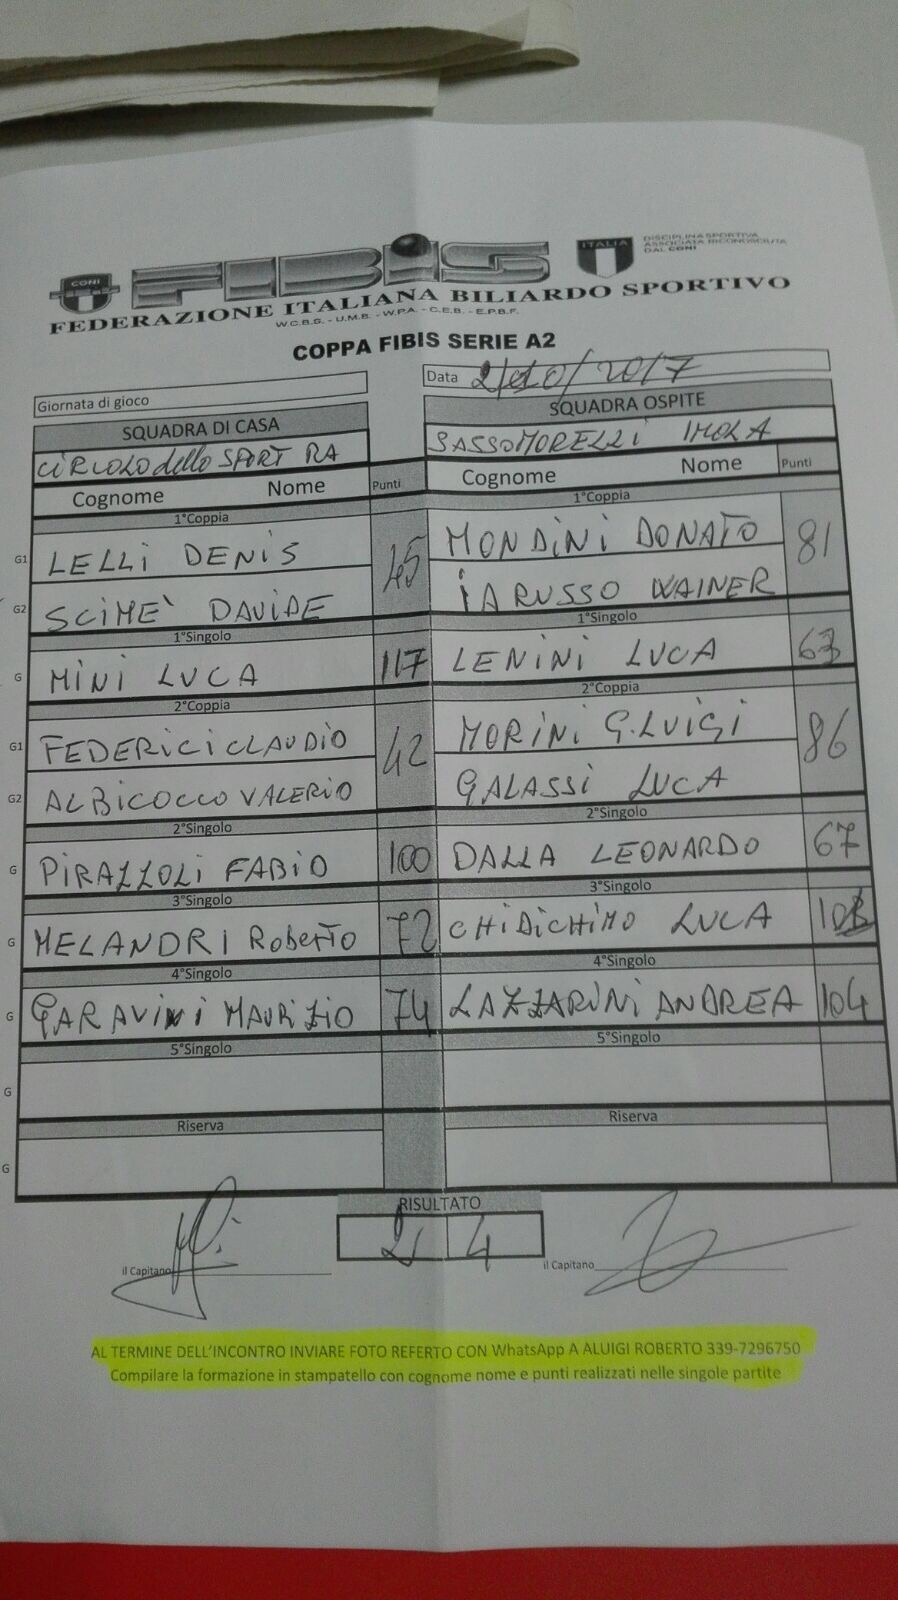 CONI
FIBIS
ITALIA
DISCIPLINA SPORTIVA
ASSOCIATA RICONOSCIUTA
DAL CONI
FEDERAZIONE ITALIANA BILIARDO SPORTIVO
W.C.B.S. - U.M.B. - W.P.A. - C.E.B. - E.P.B.F.
COPPA FIBIS SERIE A2
Giornata di gioco
Data /10/2017
SQUADRA DI CASA SQUADRA OSPITE
CIRCOLO dello SPORT RA SASSOMORELLI IMOLA
Cognome Nome Punti Cognome Nome Punti
1°Coppia 1°Coppia
G1 LELLI DENIS 45 MONDINI DONATO 81
G2 SCIME' DAVIDE IARUSSO WAINER
1°Singolo 1°Singolo
G MINI LUCA 117 LENINI LUCA 63
2°Coppia 2°Coppia
G1 FEDERICI CLAUDIO 42 MORINI G.LUIGI 86
G2 ALBICOCCO VALERIO GALASSI LUCA
2°Singolo 2°Singolo
G PIRAZZOLI FABIO 100 DALLA LEONARDO 67
3°Singolo 3°Singolo
G MELANDRI Roberto 72 CHIDICHIMO LUCA
4°Singolo 4°Singolo
G GARAVINI MAURIZIO 74 LAZZARINI ANDREA 104
5°Singolo 5°Singolo
G
Riserva Riserva
G
RISULTATO
2 4
il Capitano il Capitano
AL TERMINE DELL'INCONTRO INVIARE FOTO REFERTO CON WhatsApp A ALUIGI ROBERTO 339-7296750
Compilare la formazione in stampatello con cognome nome e punti realizzati nelle singole partite